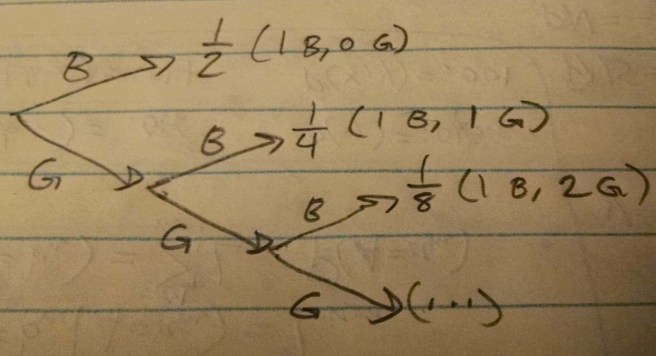 B 1/2 (1 B, 0 G)
G B 1/4 (1 B, 1 G)
G B 1/8 (1 B, 2 G)
G (...)